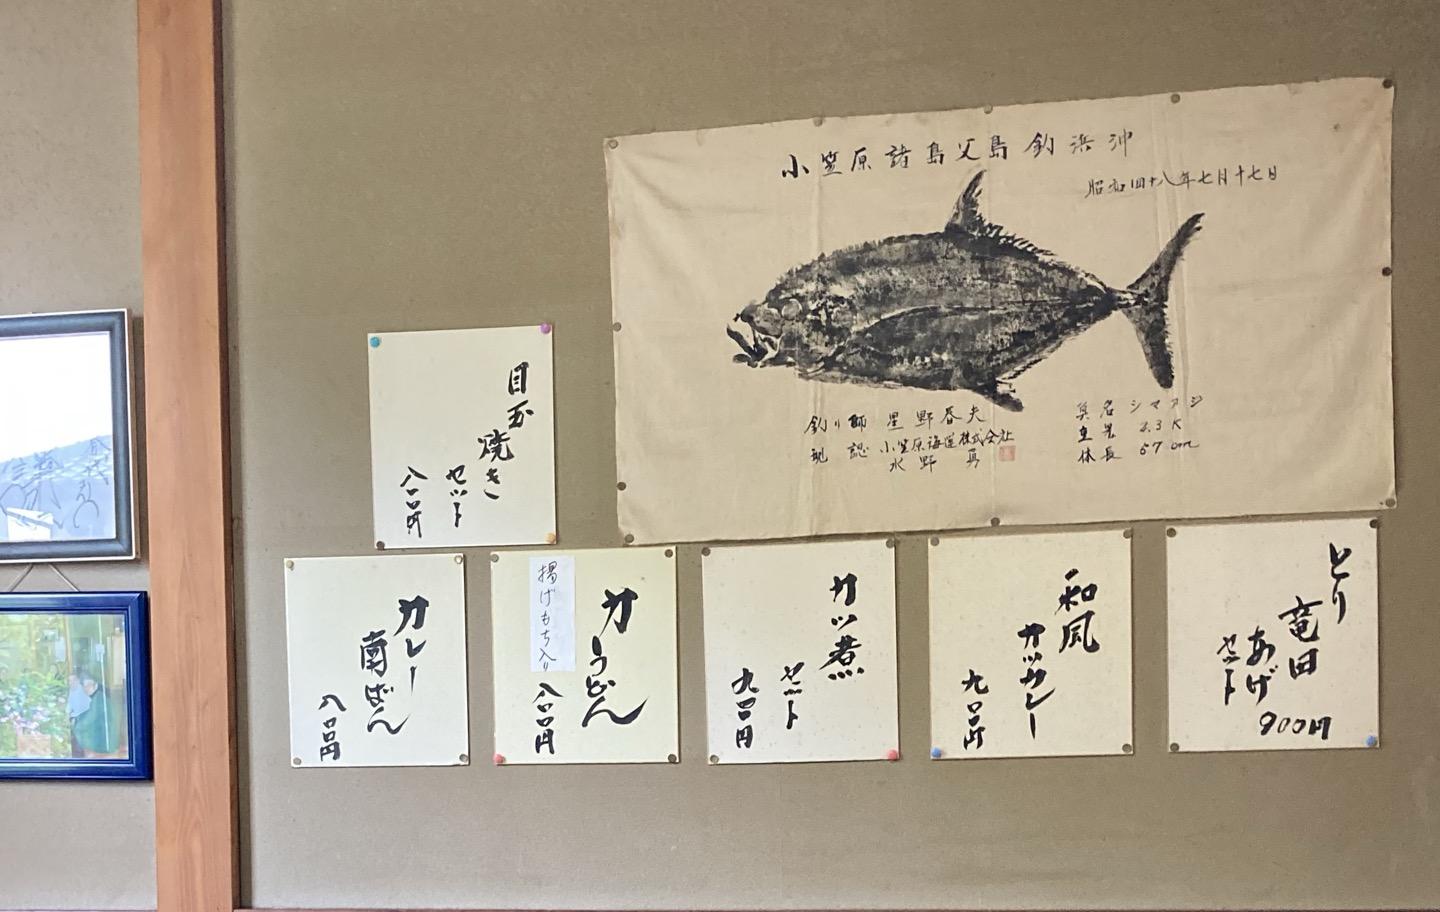 小笠原諸島父島釣浜沖
昭和四十八年七月十七日
釣り師 星野春夫
現認 小笠原海運株式会社
水野 勇
魚名 シマアジ
重量 2.3K
体長 57cm
目玉
焼き
セット
八〇〇円
とり
竜田
あげ
セット
900円
和風
カツカレー
九〇〇円
カツ煮
セット
九〇〇円
力うどん
揚げもち入り
八〇〇円
カレー
南ばん
八〇〇円